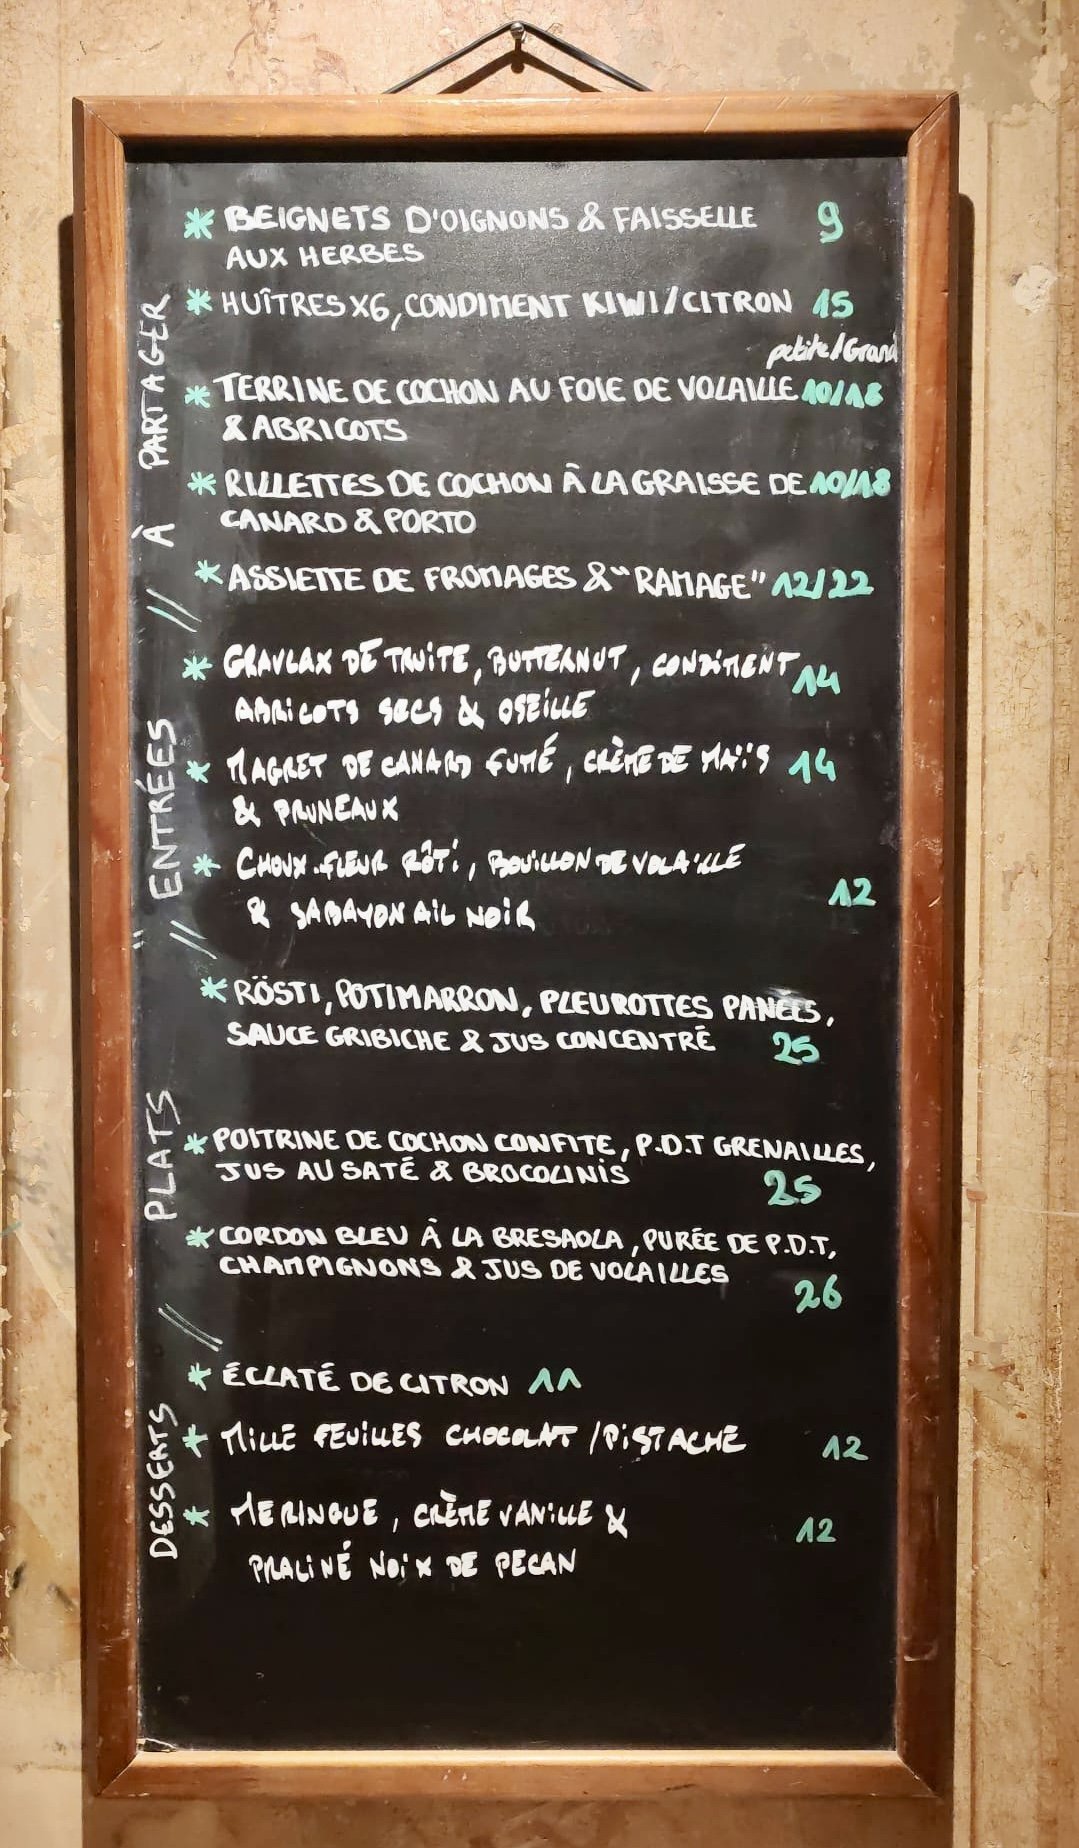 À PARTAGER
* BEIGNETS D'OIGNONS & FAISSELLE 9
AUX HERBES
* HUÎTRES X6, CONDIMENT KIWI/CITRON 15
petite/Grand
* TERRINE DE COCHON AU FOIE DE VOLAILLE 10/18
& ABRICOTS
* RILLETTES DE COCHON À LA GRAISSE DE 10/18
CANARD & PORTO
* ASSIETTE DE FROMAGES & "RAMAGE" 12/22
// ENTRÉES //
* GRAVLAX DE TRUITE, BUTTERNUT, CONDIMENT 14
ABRICOTS SECS & OSEILLE
* MAGRET DE CANARD FUMÉ, CRÈME DE MAÏS 14
& PRUNEAUX
* CHOUX-FLEUR RÔTI, BOUILLON DE VOLAILLE
& SABAYON AIL NOIR 12
PLATS
* RÖSTI, POTIMARRON, PLEUROTTES PANÉES,
SAUCE GRIBICHE & JUS CONCENTRÉ 25
* POITRINE DE COCHON CONFITE, P.D.T GRENAILLES,
JUS AU SATÉ & BROCOLINIS 25
* CORDON BLEU À LA BRESAOLA, PURÉE DE P.D.T,
CHAMPIGNONS & JUS DE VOLAILLES
26
DESSERTS //
* ÉCLATÉ DE CITRON 11
* MILLE FEUILLES CHOCOLAT / PISTACHE 12
* MERINGUE, CRÈME VANILLE & 12
PRALINÉ NOIX DE PECAN